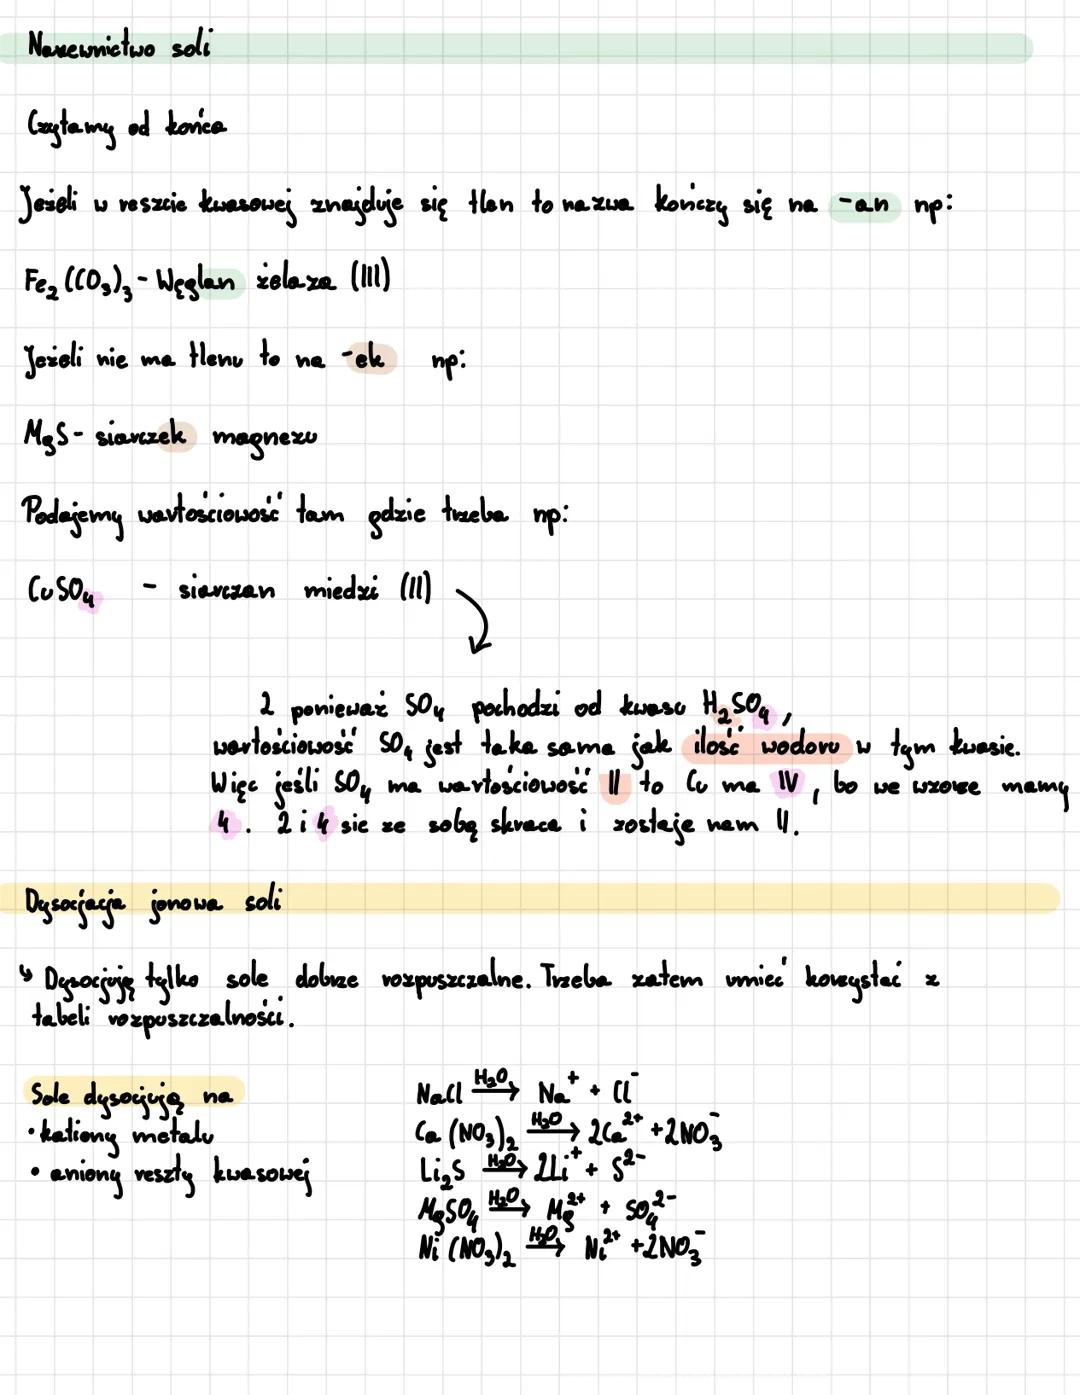 Nazewnictwo soli
Czytamy od końca
Jeżeli w reszcie kwasowej znajduje się tlen to nazwa kończy się na -an np:
Fe₂(CO₃)₃ - Węglan żelaza (III)
Jeżeli nie ma tlenu to na -ek np:
MgS - siarczek magnezu
Podajemy wartościowość tam gdzie trzeba np:
CuSO₄ - siarczan miedzi (II)
2 ponieważ SO₄ pochodzi od kwasu H₂SO₄,
wartościowość SO₄ jest taka sama jak ilość wodoru w tym kwasie.
Więc jeśli SO₄ ma wartościowość II to Cu ma IV, bo we wzorze mamy
4. 2 i 4 sie ze sobą skraca i zostaje nam II.
Dysocjacja jonowa soli
↳ Dysocjują tylko sole dobrze rozpuszczalne. Trzeba zatem umieć korzystać z
tabeli rozpuszczalności.
Sole dysocjują na
• kationy metalu
• aniony reszty kwasowej
NaCl H₂O→ Na⁺ + Cl⁻
Ca(NO₃)₂ H₂O→ 2Ca²⁺ + 2NO₃⁻
Li₂S H₂O→ 2Li⁺ + S²⁻
MgSO₄ H₂O→ Mg²⁺ + SO₄²⁻
Ni(NO₃)₂ H₂O→ Ni²⁺ + 2NO₃⁻